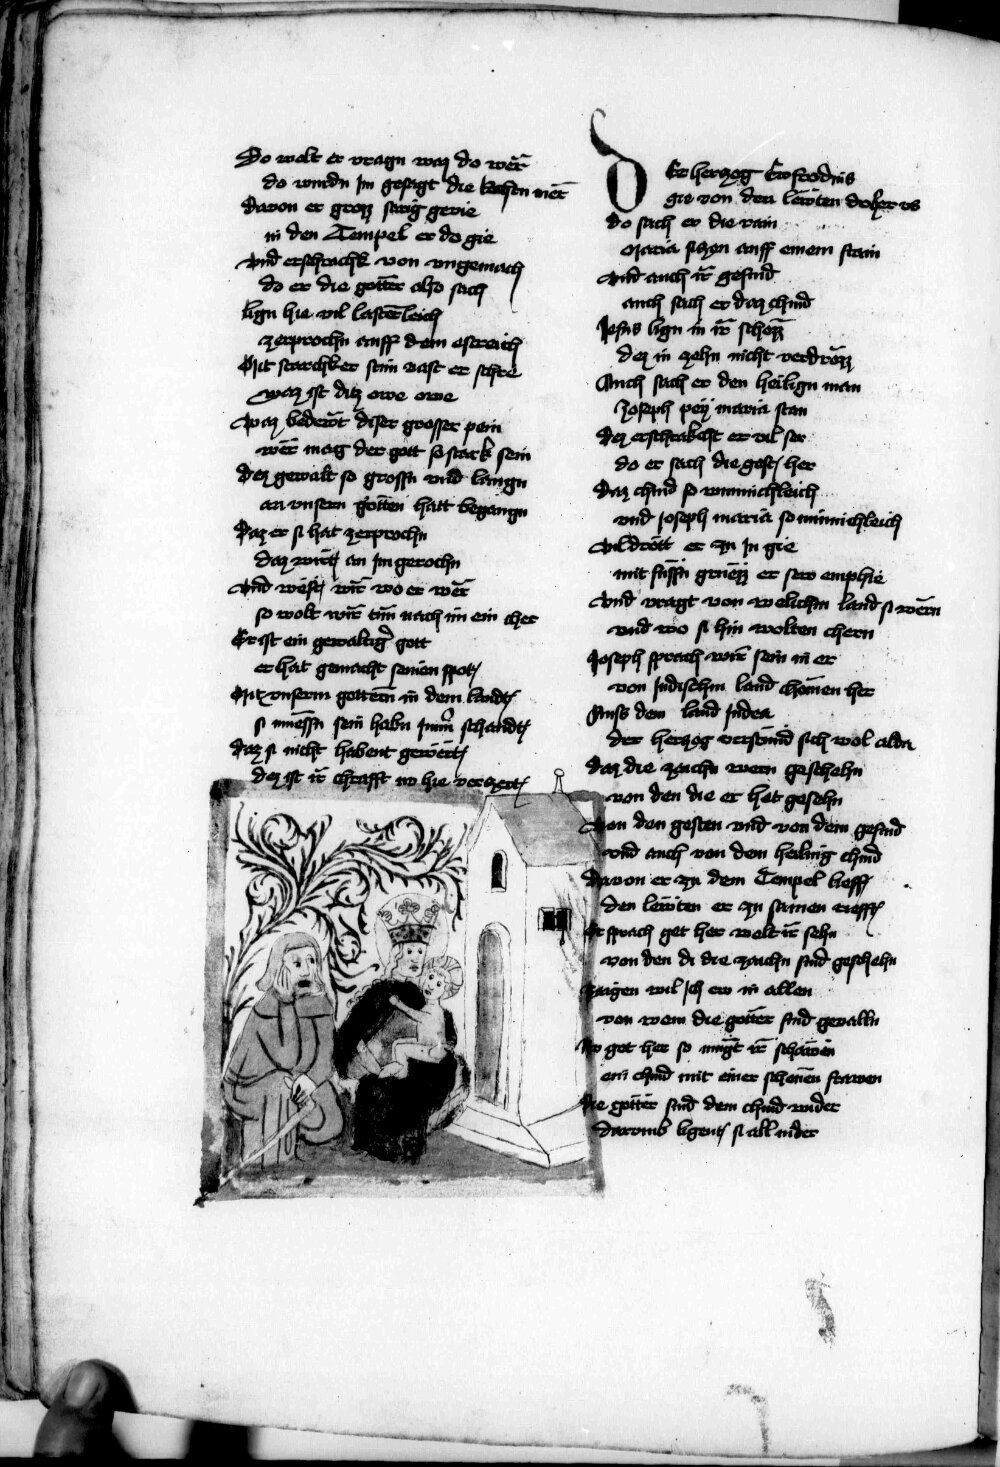 Do wolt er vragn waz do wēr
do wurdn Im gesagt die mēr
Davon er groz sarig gevie
in den Tempel er do gie
vnd erschrackh von vngemach
do er die götter also sach
lign hie vil lasterleich
zerprochn auff dem estreich
Mit starchker stim vast er schre
waz ist ditz owe owe
Waz bedewt diser grosser pein
wēr mag der gott so stark sein
Dez gewalt so grossn vnd langn
an vnsern götten hatt begangn
Daz er si hat zerprochn
daz wirt an Im gerochn
Vnd west wir wo er wēr
so wolt wir tun nach im ein cher
Er ist ein gewaltiger gott
er hat gemacht seinen spot
Mit vnserm gottern in dem landt
si muessn sein habn schandt
Daz si nicht habent gewert
dez ist ir chrafft no hie verzert
Der herzog
gie von den lewten do her vs
do sach er die rain
Maria siczn auff einem stain
Vnd auch ir gesind
auch sach er daz chind
Jesus lign in ir schozz
dez in zehn nicht verdrozz
Auch sach er den heilign man
Joseph pey maria stan
Dez erschrakcht er vil ser
do er sach die gest her
Daz chind so wunnichleich
vnd Joseph maria so minnichleich
Vil drott er zu In gie
mit suessn gruezz er sew emphie
Vnd vragt von welichm land si wern
vnd wo si hin wolten chern
Joseph sprach wir sein in er
von Judischm land chomen her
Auss dem land Judea
der herzog verstund sich wol alda
Daz die zaichn wern geschehn
von den die er het gesehn
Von den gesten vnd von dem gesind
vnd auch von dem heilig chind
Davon er zu dem Tempel lieff
den lewten er zu samen rieff
Er sprach get her welt ir sehn
von den di die zaichn sind geschehn
zaigen wil Ich ew in allen
von wem die götter sind gevalln
No get her so mugt ir schawen
ein chind mit einer schonen frawen
Die götter sind dem chind wider
darumb ligent si all nider